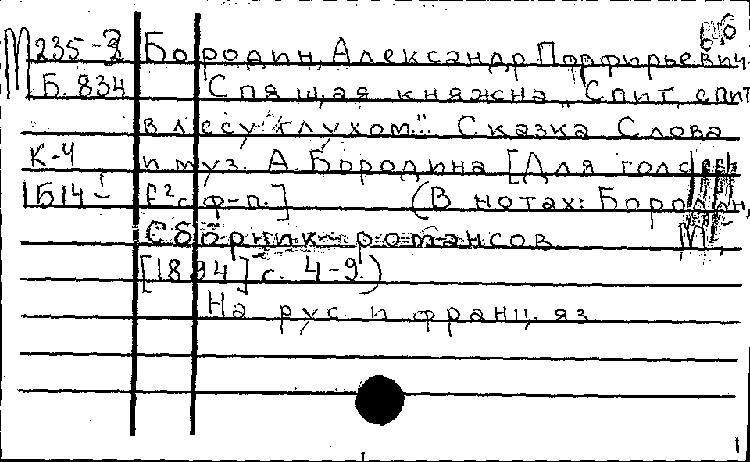 М 235-3 Бородин, Александр Порфирьевич
Б. 834 Спящая княжна „Спит, спит
в лесу глухом". Сказка Слова
К-4 и муз. А. Бородина [Для голоса
Б14 f² с ф-п.] (В нотах: Бородин,
Сборник романсов М.,
[1894] с. 4-9.)
На рус и франц. яз
1